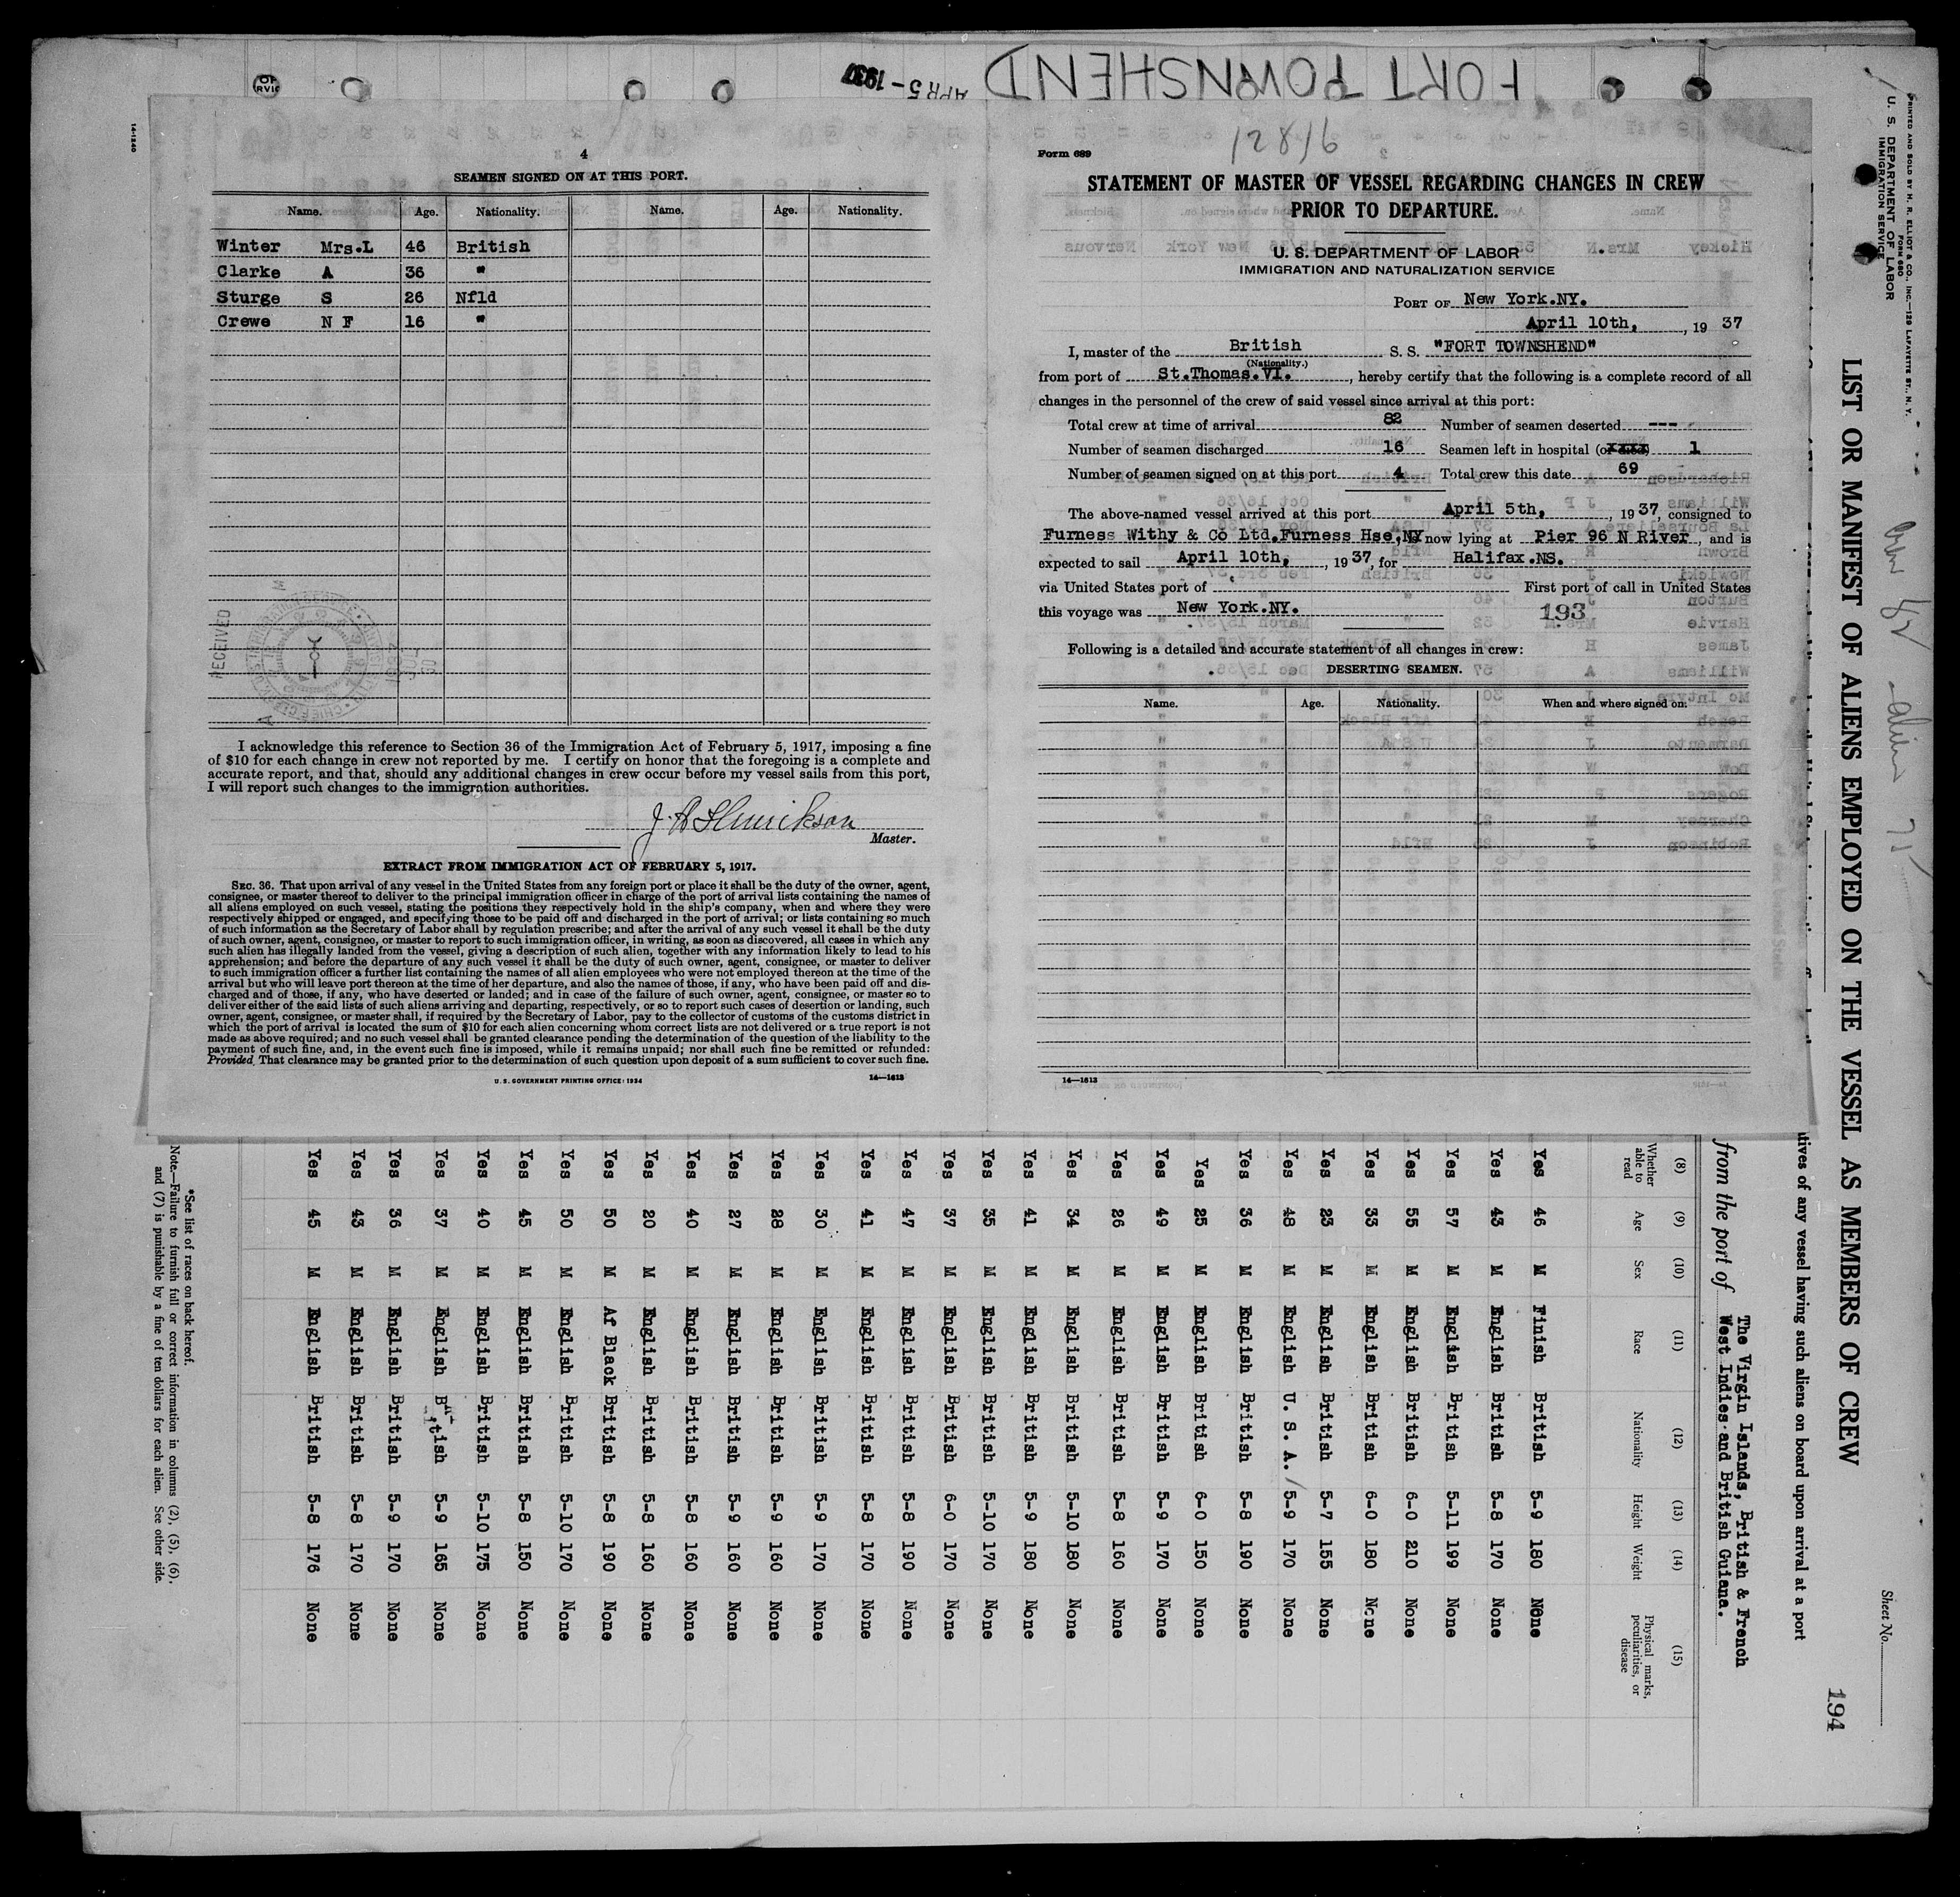 FORT TOWNSHEND
APR 5 - 1937
14-1240
4
SEAMEN SIGNED ON AT THIS PORT.
Name. Age. Nationality. Name. Age. Nationality.
Winter Mrs.L 46 British
Clarke A 36 "
Sturge S 26 Nfld
Crewe N F 16 "
RECEIVED
I acknowledge this reference to Section 36 of the Immigration Act of February 5, 1917, imposing a fine
of $10 for each change in crew not reported by me. I certify on honor that the foregoing is a complete and
accurate report, and that, should any additional changes in crew occur before my vessel sails from this port,
I will report such changes to the immigration authorities.
Master.
EXTRACT FROM IMMIGRATION ACT OF FEBRUARY 5, 1917.
SEC. 36. That upon arrival of any vessel in the United States from any foreign port or place it shall be the duty of the owner, agent,
consignee, or master thereof to deliver to the principal immigration officer in charge of the port of arrival lists containing the names of
all aliens employed on such vessel, stating the positions they respectively hold in the ship's company, when and where they were
respectively shipped or engaged, and specifying those to be paid off and discharged in the port of arrival; or lists containing so much
of such information as the Secretary of Labor shall by regulation prescribe; and after the arrival of any such vessel it shall be the duty
of such owner, agent, consignee, or master to report to such immigration officer, in writing, as soon as discovered, all cases in which any
such alien has illegally landed from the vessel, giving a description of such alien, together with any information likely to lead to his
apprehension; and before the departure of any such vessel it shall be the duty of such owner, agent, consignee, or master to deliver
to such immigration officer a further list containing the names of all alien employees who were not employed thereon at the time of the
arrival but who will leave port thereon at the time of her departure, and also the names of those, if any, who have been paid off and dis-
charged and of those, if any, who have deserted or landed; and in case of the failure of such owner, agent, consignee, or master so to
deliver either of the said lists of such aliens arriving and departing, respectively, or so to report such cases of desertion or landing, such
owner, agent, consignee, or master shall, if required by the Secretary of Labor, pay to the collector of customs of the customs district in
which the port of arrival is located the sum of $10 for each alien concerning whom correct lists are not delivered or a true report is not
made as above required; and no such vessel shall be granted clearance pending the determination of the question of the liability to the
payment of such fine, and, in the event such fine is imposed, while it remains unpaid; nor shall such fine be remitted or refunded:
Provided, That clearance may be granted prior to the determination of such question upon deposit of a sum sufficient to cover such fine.
U. S. GOVERNMENT PRINTING OFFICE: 1934 14—1613
12816
Form 689
STATEMENT OF MASTER OF VESSEL REGARDING CHANGES IN CREW
PRIOR TO DEPARTURE.
U. S. DEPARTMENT OF LABOR
IMMIGRATION AND NATURALIZATION SERVICE
PORT OF New York.NY.
April 10th, , 19 37
I, master of the British S. S. "FORT TOWNSHEND"
(Nationality.)
from port of St.Thomas.VI. , hereby certify that the following is a complete record of all
changes in the personnel of the crew of said vessel since arrival at this port:
Total crew at time of arrival 82 Number of seamen deserted ---
Number of seamen discharged 16 Seamen left in hospital (or died) 1
Number of seamen signed on at this port 4 Total crew this date 69
The above-named vessel arrived at this port April 5th, , 19 37, consigned to
Furness Withy & Co Ltd.Furness Hse,NY now lying at Pier 96 N River , and is
expected to sail April 10th, , 19 37, for Halifax.NS.
via United States port of First port of call in United States
this voyage was New York.NY. 193
Following is a detailed and accurate statement of all changes in crew:
DESERTING SEAMEN.
Name. Age. Nationality. When and where signed on.
14—1613
PRINTED AND SOLD BY H. R. ELLIOT & CO., INC.—129 LAFAYETTE ST., N. Y.
FORM 680
U. S. DEPARTMENT OF LABOR
IMMIGRATION SERVICE
Sheet No.
LIST OR MANIFEST OF ALIENS EMPLOYED ON THE VESSEL AS MEMBERS OF CREW
194
tives of any vessel having such aliens on board upon arrival at a port
from the port of The Virgin Islands, British & French
West Indies and British Guiana.
(8) (9) (10) (11) (12) (13) (14) (15)
Whether able to read Age Sex Race Nationality Height Weight Physical marks, peculiarities, or disease
Yes 46 M Finish British 5-9 180 None
Yes 43 M English British 5-8 170 None
Yes 57 M English British 5-11 199 None
Yes 55 M English British 6-0 210 None
Yes 33 M English British 6-0 180 None
Yes 23 M English British 5-7 155 None
Yes 48 M English U. S. A. 5-9 170 None
Yes 36 M English British 5-8 190 None
Yes 25 M English British 6-0 150 None
Yes 49 M English British 5-9 170 None
Yes 26 M English British 5-8 160 None
Yes 34 M English British 5-10 180 None
Yes 41 M English British 5-9 180 None
Yes 35 M English British 5-10 170 None
Yes 37 M English British 6-0 170 None
Yes 47 M English British 5-8 190 None
Yes 41 M English British 5-8 170 None
Yes 30 M English British 5-9 170 None
Yes 28 M English British 5-9 160 None
Yes 27 M English British 5-9 160 None
Yes 40 M English British 5-8 160 None
Yes 20 M English British 5-8 160 None
Yes 50 M Af Black British 5-8 190 None
Yes 50 M English British 5-10 170 None
Yes 45 M English British 5-8 150 None
Yes 40 M English British 5-10 175 None
Yes 37 M English British 5-9 165 None
Yes 36 M English British 5-9 170 None
Yes 43 M English British 5-8 170 None
Yes 45 M English British 5-8 176 None
*See list of races on back hereof.
Note.—Failure to furnish full or correct information in columns (2), (5), (6),
and (7) is punishable by a fine of ten dollars for each alien. See other side.